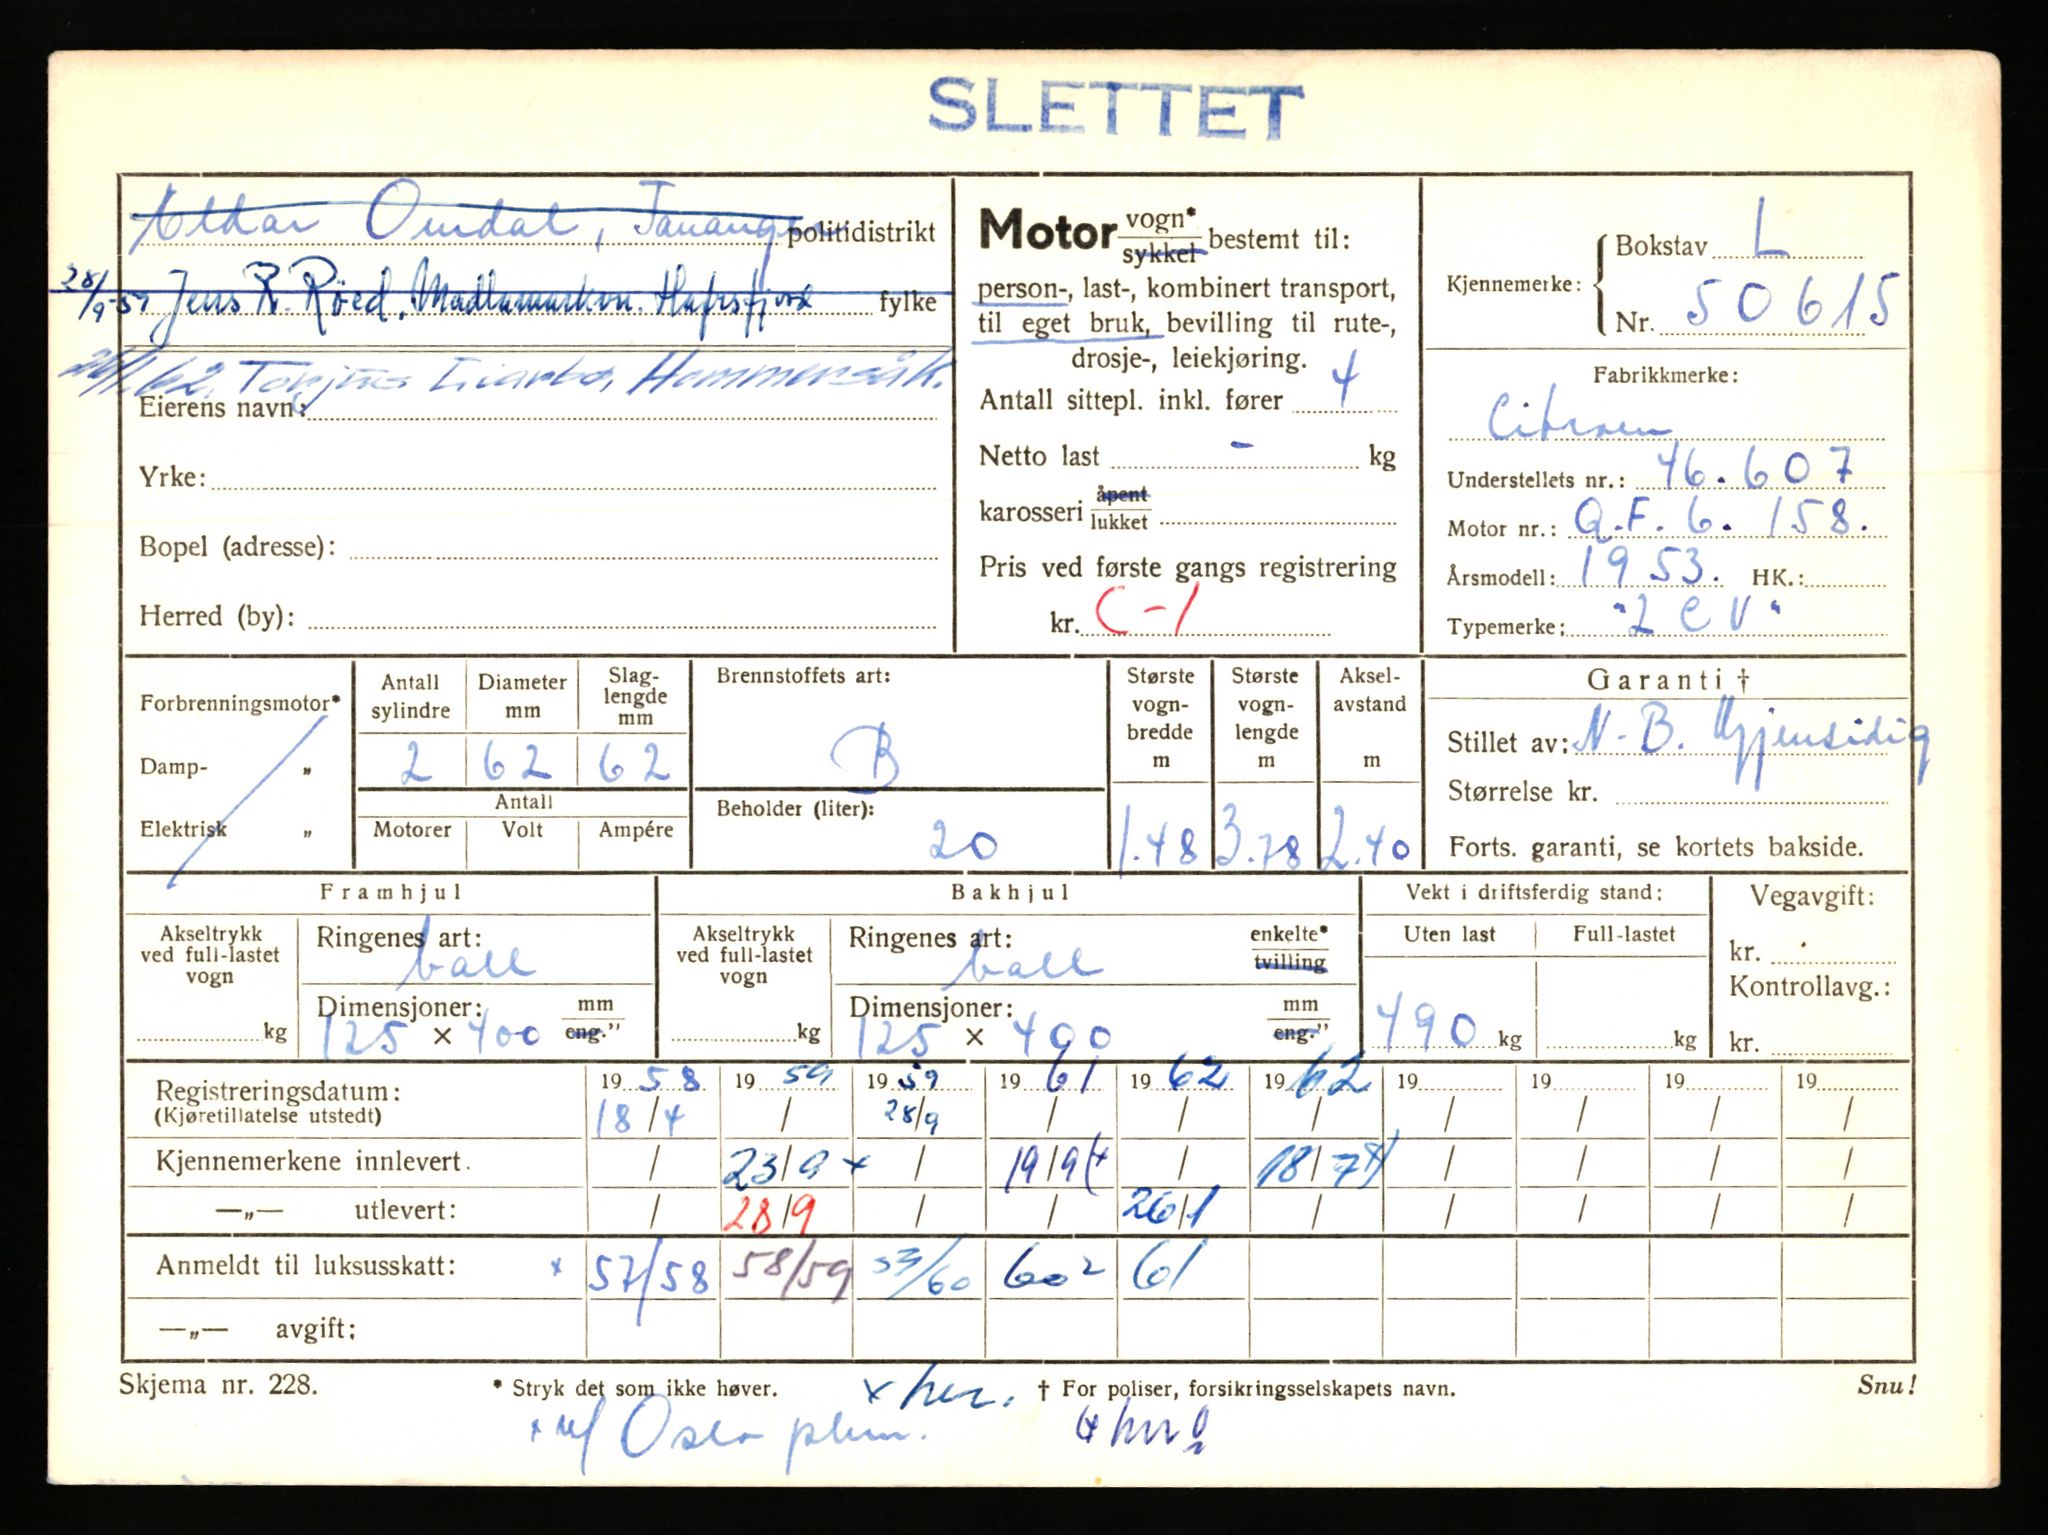 SLETTET
Omdal, politidistrikt
28/9-59 Jens R. Röed, Madlamarkvn. Hafrsfjord fylke
62. Hommersåk.
Eierens navn:
Yrke:
Bopel (adresse):
Herred (by):
Motor vogn* / sykkel bestemt til:
person-, last-, kombinert transport,
til eget bruk, bevilling til rute-,
drosje-, leiekjøring.
Antall sittepl. inkl. fører 4
Netto last - kg
karosseri åpent / lukket
Pris ved første gangs registrering
kr. C-1
Kjennemerke: Bokstav L
Nr. 50615
Fabrikkmerke:
Citroen
Understellets nr.: 46.607
Motor nr.: Q.F. 6. 158.
Årsmodell: 1953. HK.:
Typemerke: "2 CV"
Forbrenningsmotor*
Damp- „
Elektrisk „
Antall sylindre Diameter mm Slag-lengde mm
2 62 62
Antall
Motorer Volt Ampére
Brennstoffets art:
B
Beholder (liter):
20
Største vogn-bredde m Største vogn-lengde m Aksel-avstand m
1.48 3.78 2.40
Garanti †
Stillet av: N. B. Gjensidig
Størrelse kr.
Forts. garanti, se kortets bakside.
Framhjul
Akseltrykk ved full-lastet vogn
kg
Ringenes art:
ball
Dimensjoner: mm
125 × 400 eng."
Bakhjul
Akseltrykk ved full-lastet vogn
kg
Ringenes art: enkelte*
ball tvilling
Dimensjoner: mm
125 × 400 eng."
Vekt i driftsferdig stand:
Uten last Full-lastet
490 kg kg
Vegavgift:
kr.
Kontrollavg.:
kr.
Registreringsdatum: 19 58 19 59 19 59 19 61 19 62 19 62 19 19 19 19
(Kjøretillatelse utstedt) 18/4 / 28/9 / / / / / / /
Kjennemerkene innlevert. / 23/9 x / 19/9 (x / 18/7 x) / / / /
—„— utlevert: / 28/9 / / 26/1 / / / / /
Anmeldt til luksusskatt: x 57/58 58/59 59/60 60² 61
—„— avgift:
Skjema nr. 228. * Stryk det som ikke høver. x her. † For poliser, forsikringsselskapets navn. Snu!
x Oslo